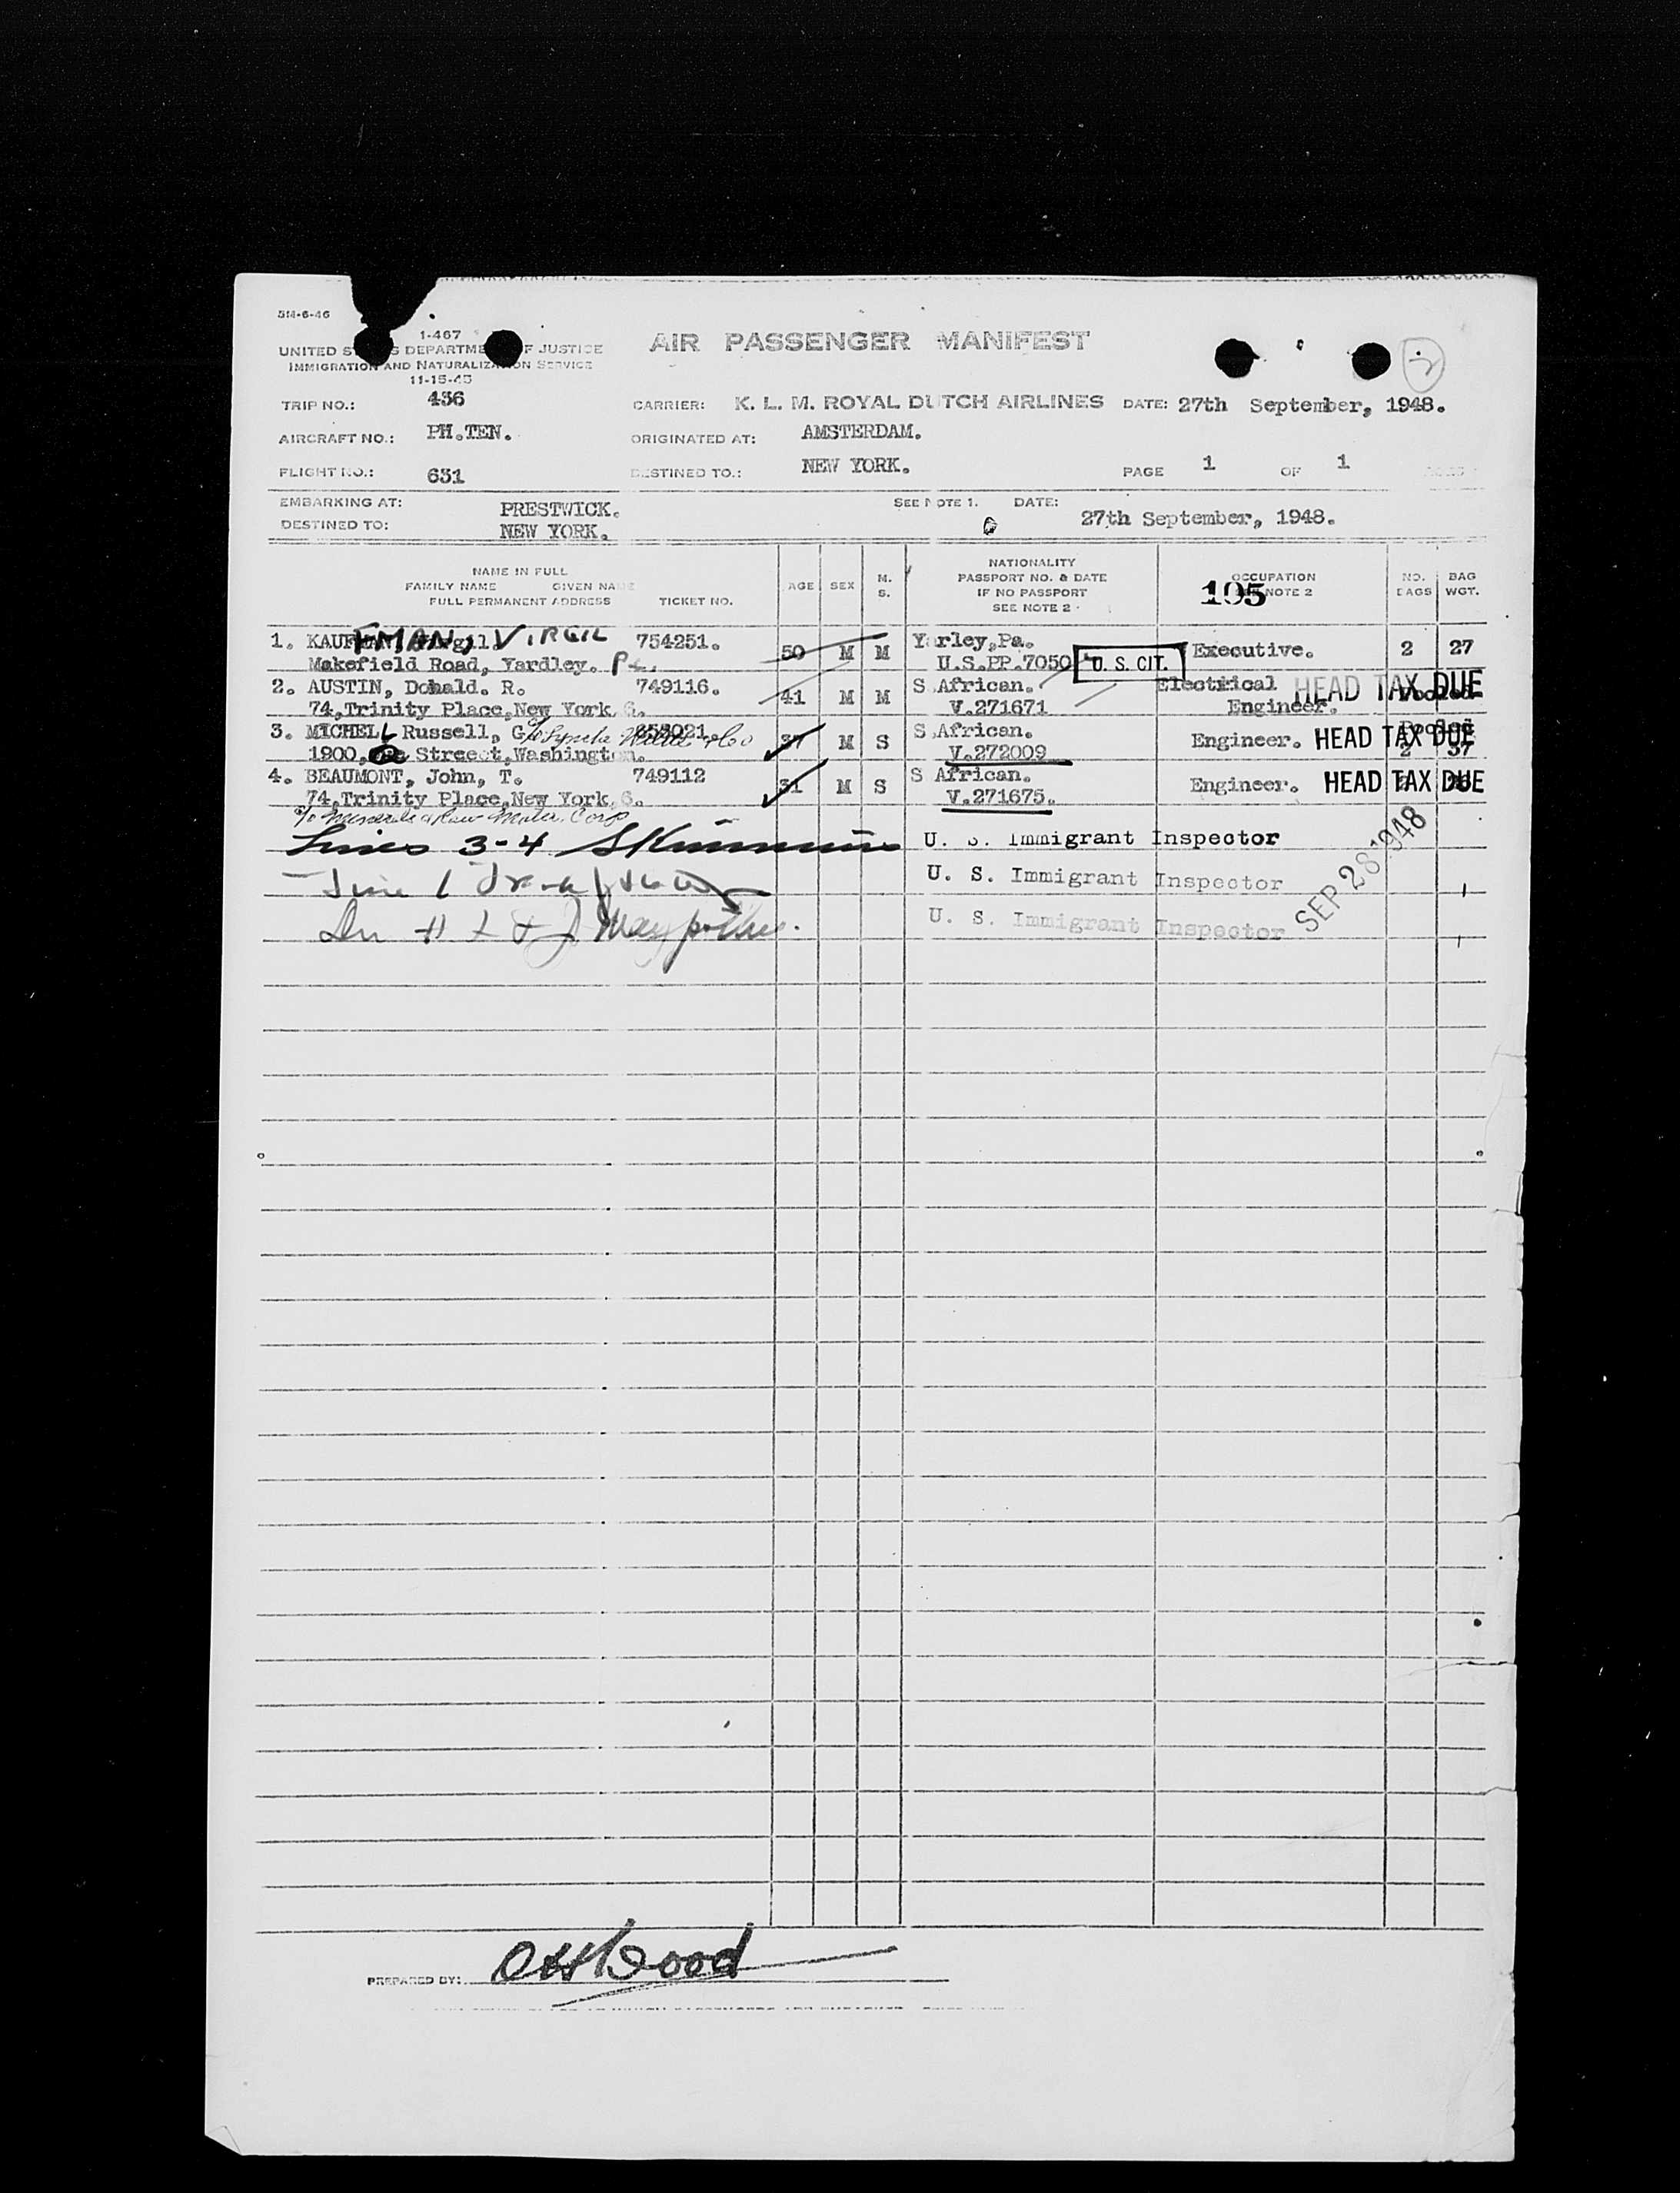 5M-6-46
1-467
UNITED S S DEPARTME F JUSTICE
IMMIGRATION AND NATURALIZATION SERVICE
11-15-45
AIR PASSENGER MANIFEST
2
TRIP NO.: 436 CARRIER: K. L. M. ROYAL DUTCH AIRLINES DATE: 27th September, 1948.
AIRCRAFT NO.: PH.TEN. ORIGINATED AT: AMSTERDAM.
FLIGHT NO.: 631 DESTINED TO.: NEW YORK. PAGE 1 OF 1
EMBARKING AT: PRESTWICK. SEE NOTE 1. DATE: 27th September, 1948.
DESTINED TO: NEW YORK.
NAME IN FULL
FAMILY NAME GIVEN NAME
FULL PERMANENT ADDRESS TICKET NO. AGE SEX M. S. NATIONALITY PASSPORT NO. & DATE IF NO PASSPORT SEE NOTE 2 OCCUPATION NOTE 2 105 NO. BAGS BAG WGT.
1. KAUFMAN, VIRGIL 754251. 50 M M Yarley,Pa. Executive. 2 27
Makefield Road, Yardley. Pa. U.S.PP.7050 U. S. CIT.
2. AUSTIN, Donald. R. 749116. 41 M M S.African. Electrical HEAD TAX DUE
74,Trinity Place,New York,6. V.271671 Engineer.
3. MICHELL Russell, G. 37 M S S.African. Engineer. HEAD TAX DUE Pooled 2 37
1900, Streect,Washington. V.272009
4. BEAUMONT, John, T. 749112 31 M S S African. Engineer. HEAD TAX DUE
74,Trinity Place,New York,6. V.271675.
Lines 3-4 U. S. Immigrant Inspector
Line 1 U. S. Immigrant Inspector
U. S. Immigrant Inspector
SEP 28 1948
PREPARED BY: